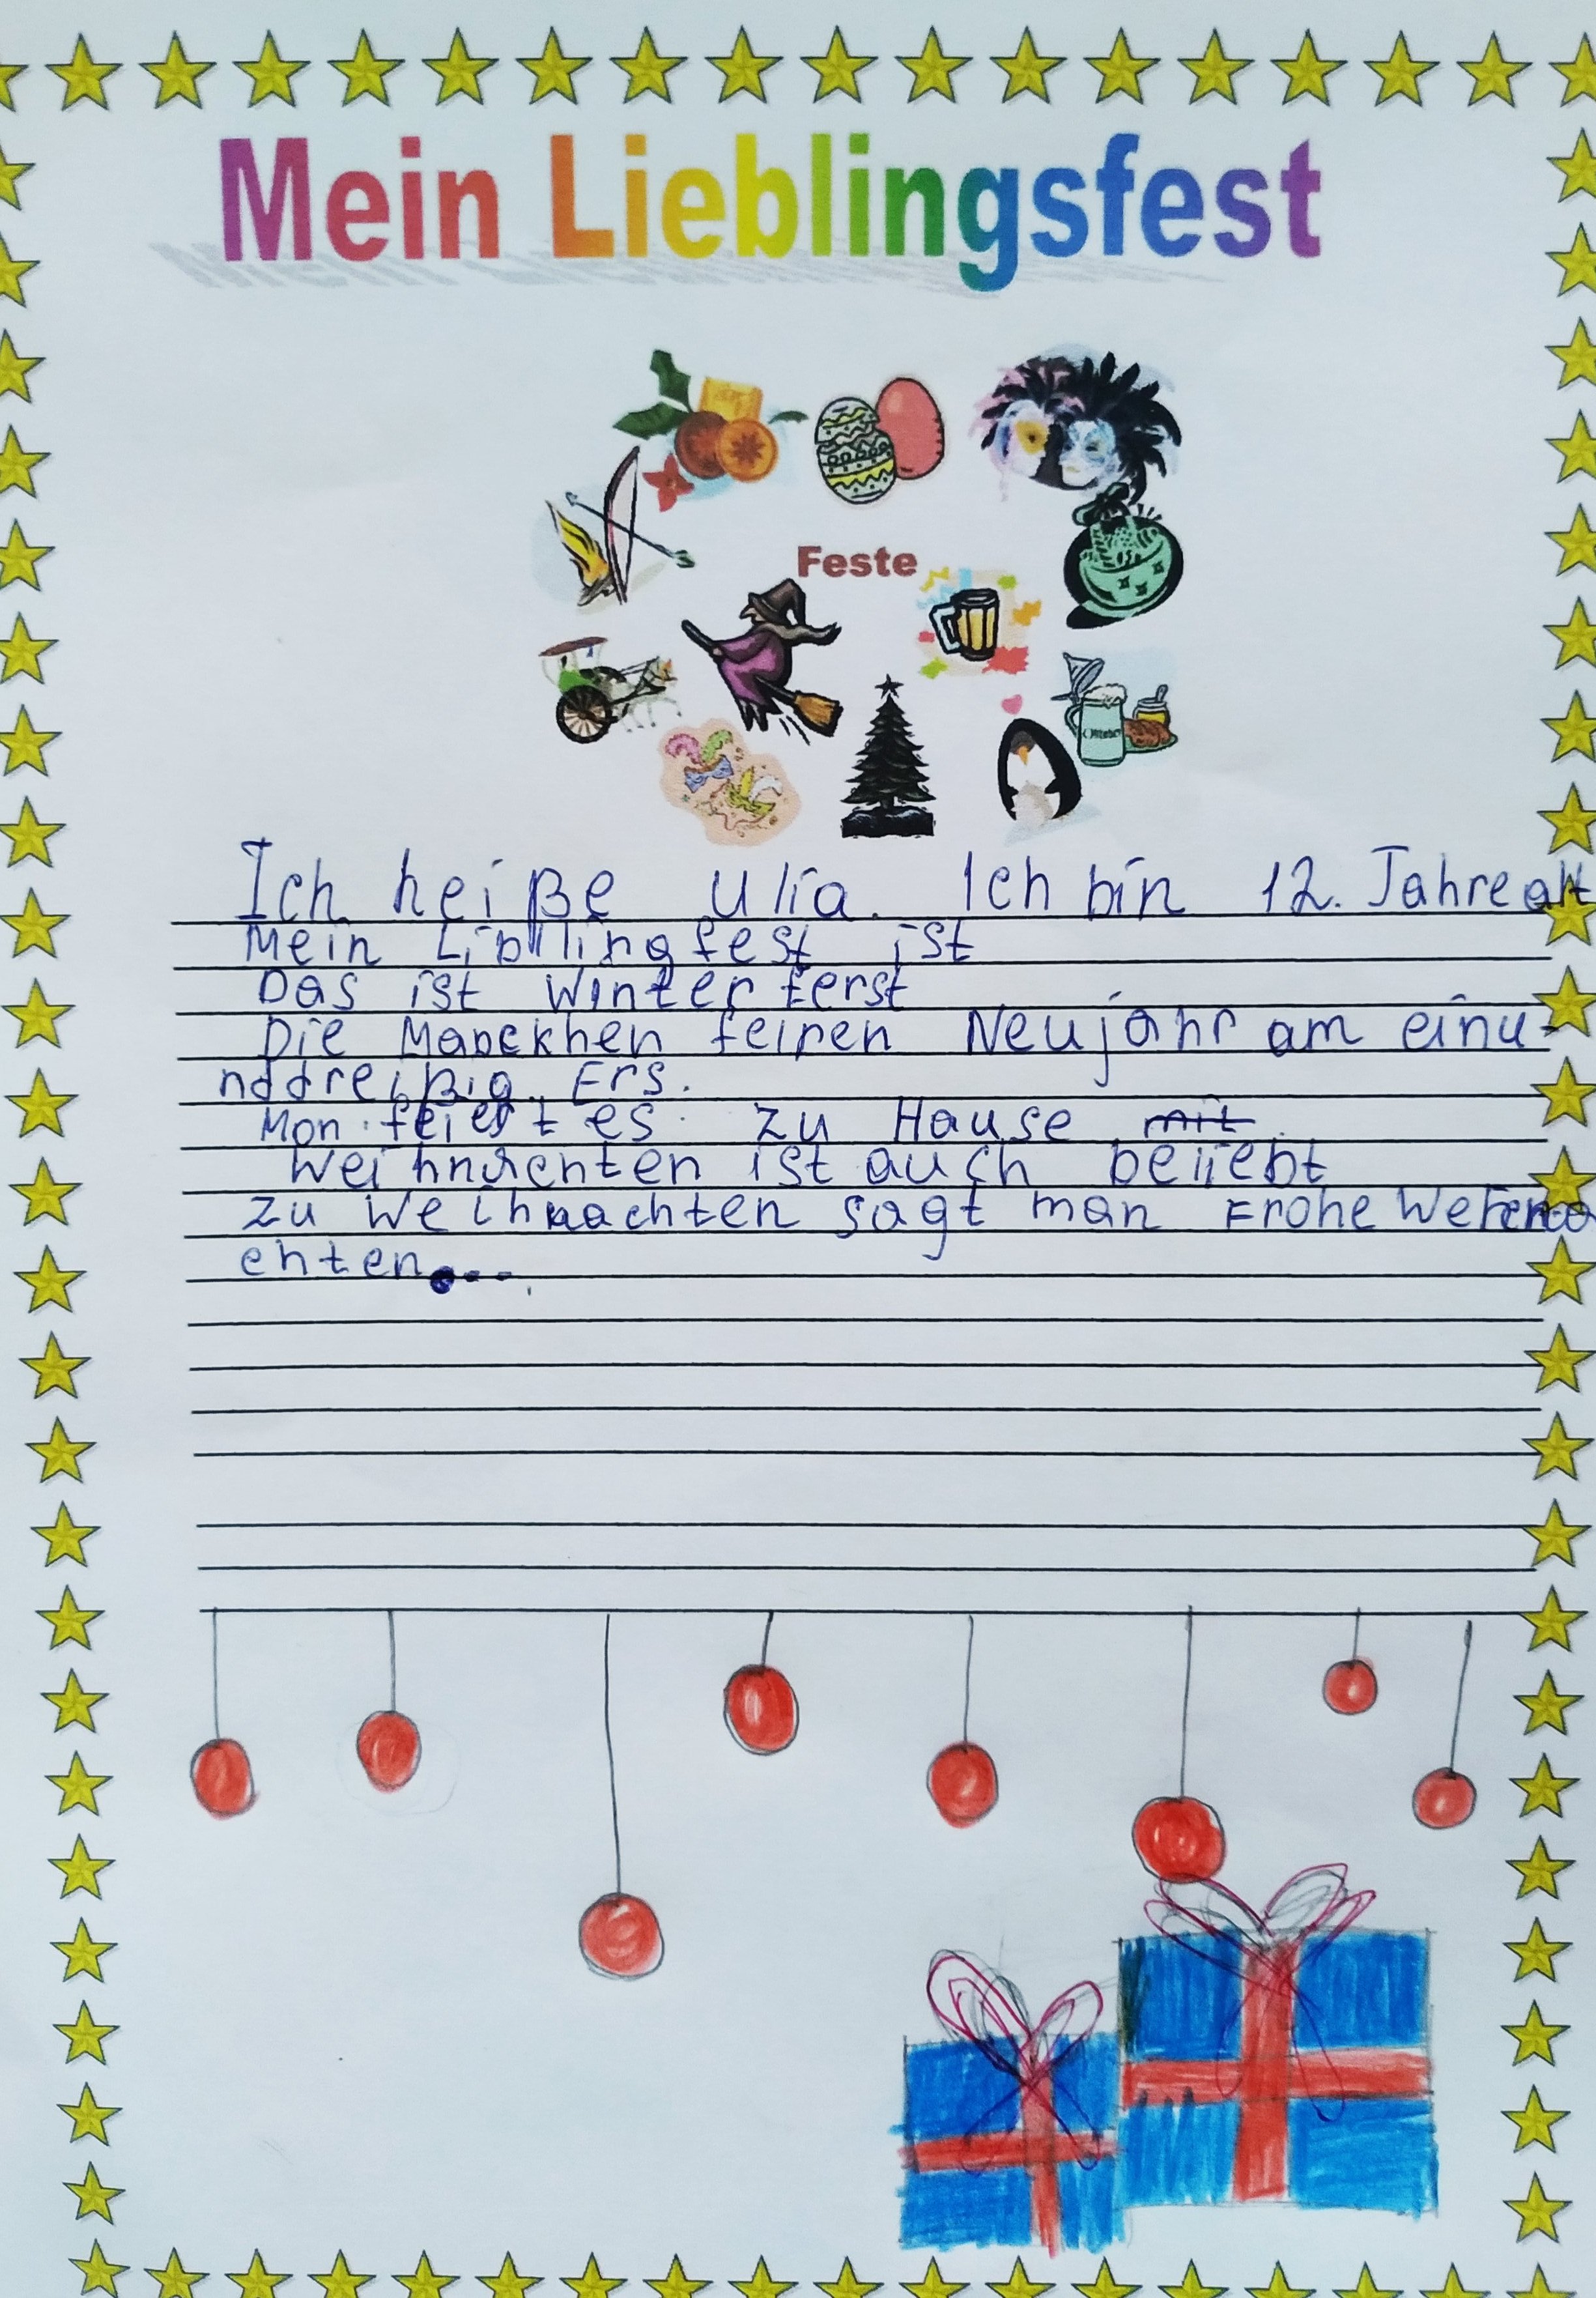 Mein Lieblingsfest
Feste
Oktober
Ich heiße Ulia. Ich bin 12. Jahre alt
Mein Libllingfest ist
Das ist Winterferst
Die Madckhen feiren Neujahr am einu-
nddreißig. Ers.
Man feiert es zu Hause mit
Weihnachten ist auch beliebt
Zu Weihnachten sagt man Frohe
chten...